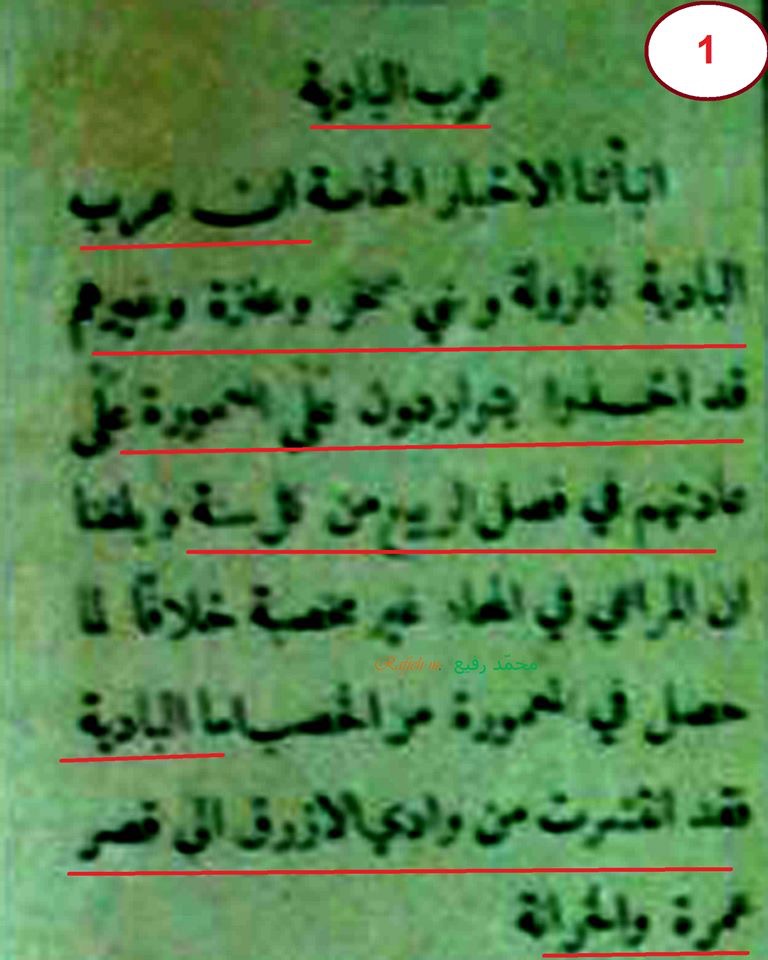 1
عرب البادية
انبأتنا الاخبار الخاصة ان عرب
البادية كالرولة وبني صخر وعنزة وغيرهم
قد اخذوا يتواردون على المعمورة على
عادتهم في فصل الربيع من كل سنة وبلغنا
ان المراعي في الحماد غير مخصبة خلافاً لما
محمّد رفيع Rafieh m.
حصل في المعمورة من الخصب اما البادية
فقد انتشرت من وادي الازرق الى قصر
عمرة والخرانة